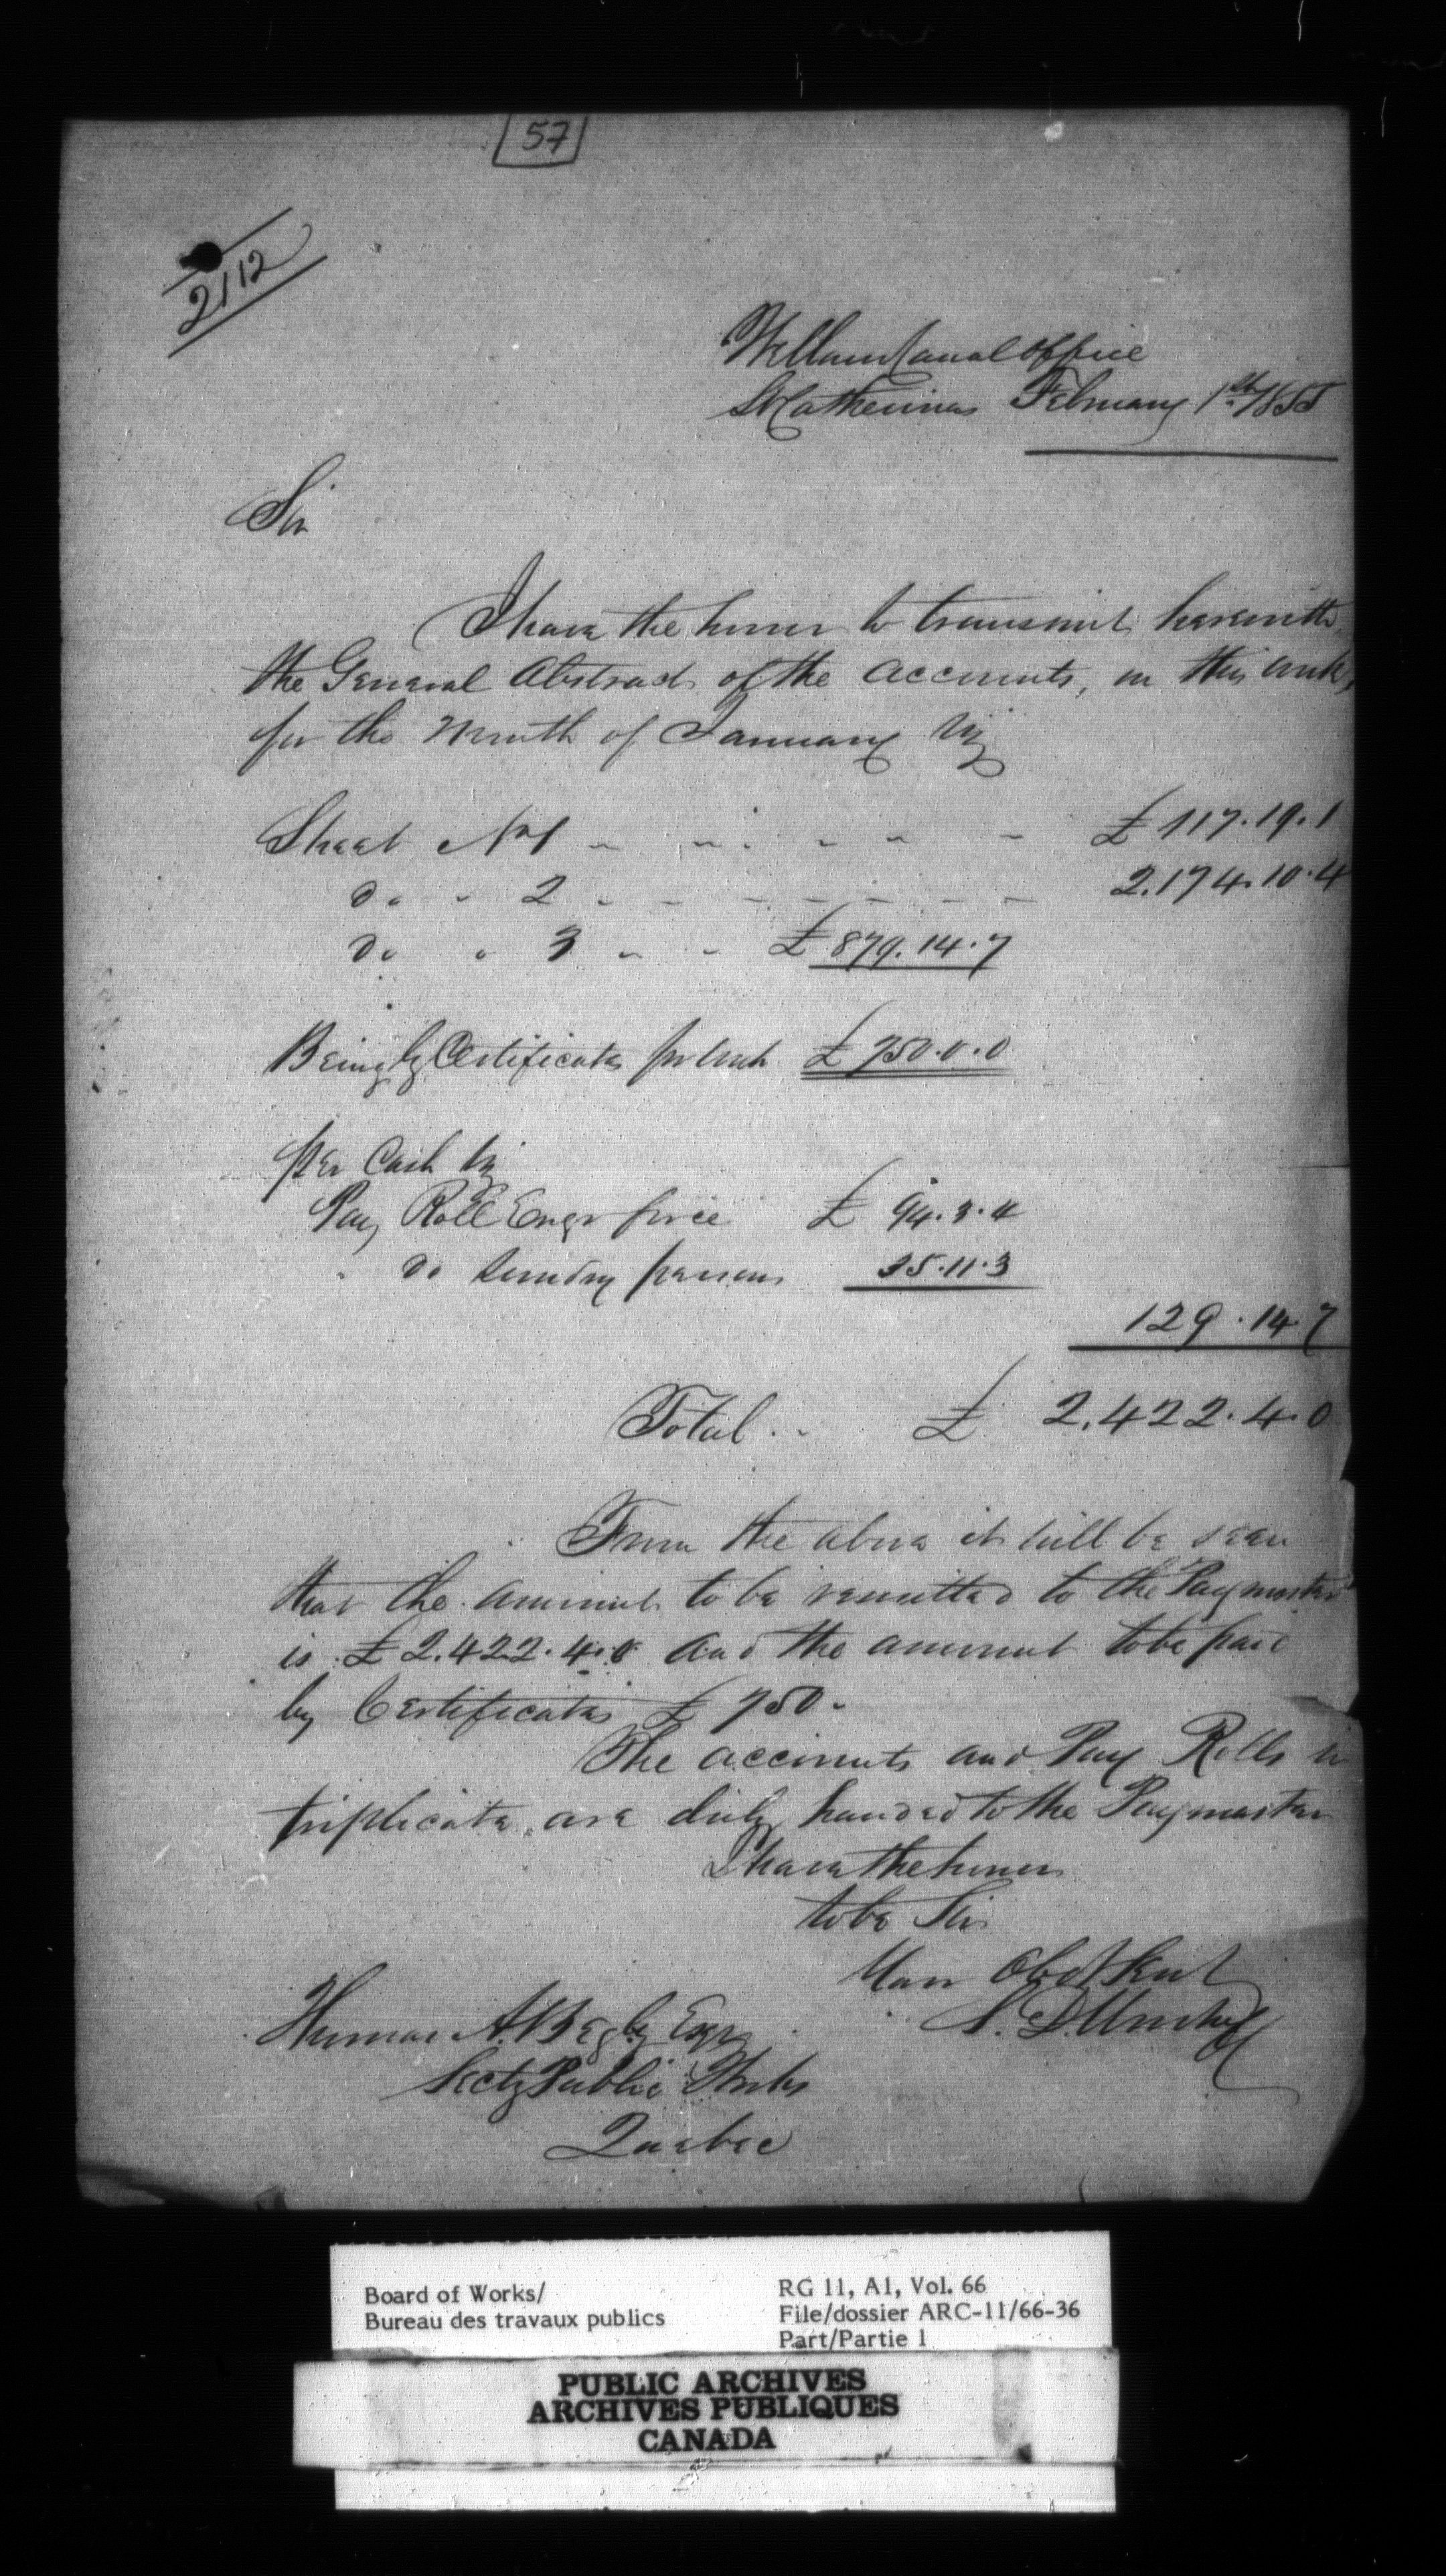 57
2112
Welland Canal Office
St Catherines February 1st 1855
Sir
I have the honor to transmit herewith
the General Abstract of the accounts, on this work,
for the month of January Viz
Sheet No 1 £ 117.19.1
Do " 2 2.174.10.4
Do " 3 £ 879.14.7
Being by Certificate for £ 750.0.0
Per Cash Viz
Pay Roll Engr force £ 94.3.4
" Do Sundry persons 35.11.3
129.14.7
Total £ 2,422.4.0
From the above it will be seen
that the amount to be remitted to the Paymaster
is £ 2.422.4.0 and the amount to be paid
by Certificates £ 750-
The accounts and Pay Rolls in
triplicate are duly handed to the Paymaster
I have the honor
to be Sir
Your Obdt Servt
S. D. Woodruff
Thomas A. Begly Esqr
Secty Public Works
Quebec
Board of Works/
Bureau des travaux publics
RG 11, A1, Vol. 66
File/dossier ARC-11/66-36
Part/Partie 1
PUBLIC ARCHIVES
ARCHIVES PUBLIQUES
CANADA